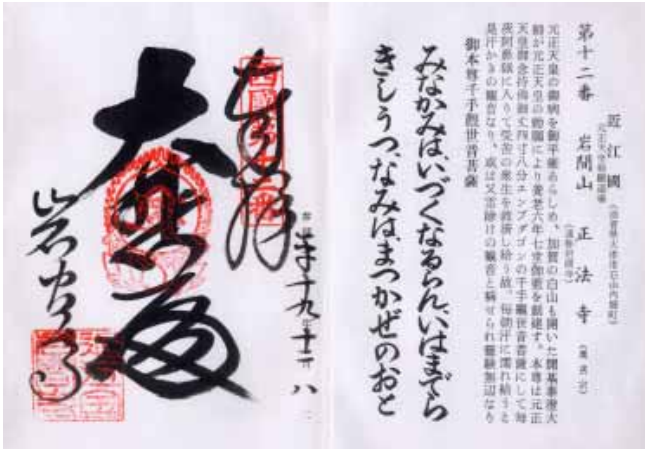 近江國
第十二番　岩間山　正法寺
元正天皇の御病を御平癒あらしめ、加賀の白山も開いた開基泰澄大
師が元正天皇の勅願により養老六年七堂伽藍を創建す。本尊は元正
天皇御念持佛御丈四寸八分エンブダゴンの千手觀世音菩薩にして毎
夜
に入りて受苦の衆生を救済し給う故、毎朝汗に濡れ給うと
是汗かきの観音なり、或は又雷除けの観音と稱せられ靈驗無辺なり
御本尊千手觀世音菩薩
みなかみは、いづくなるらん、いはまでら
きしうつ、なみは、まつかぜのおと
奉拝
西國十二番
十九年十二月八
大悲殿
岩間寺